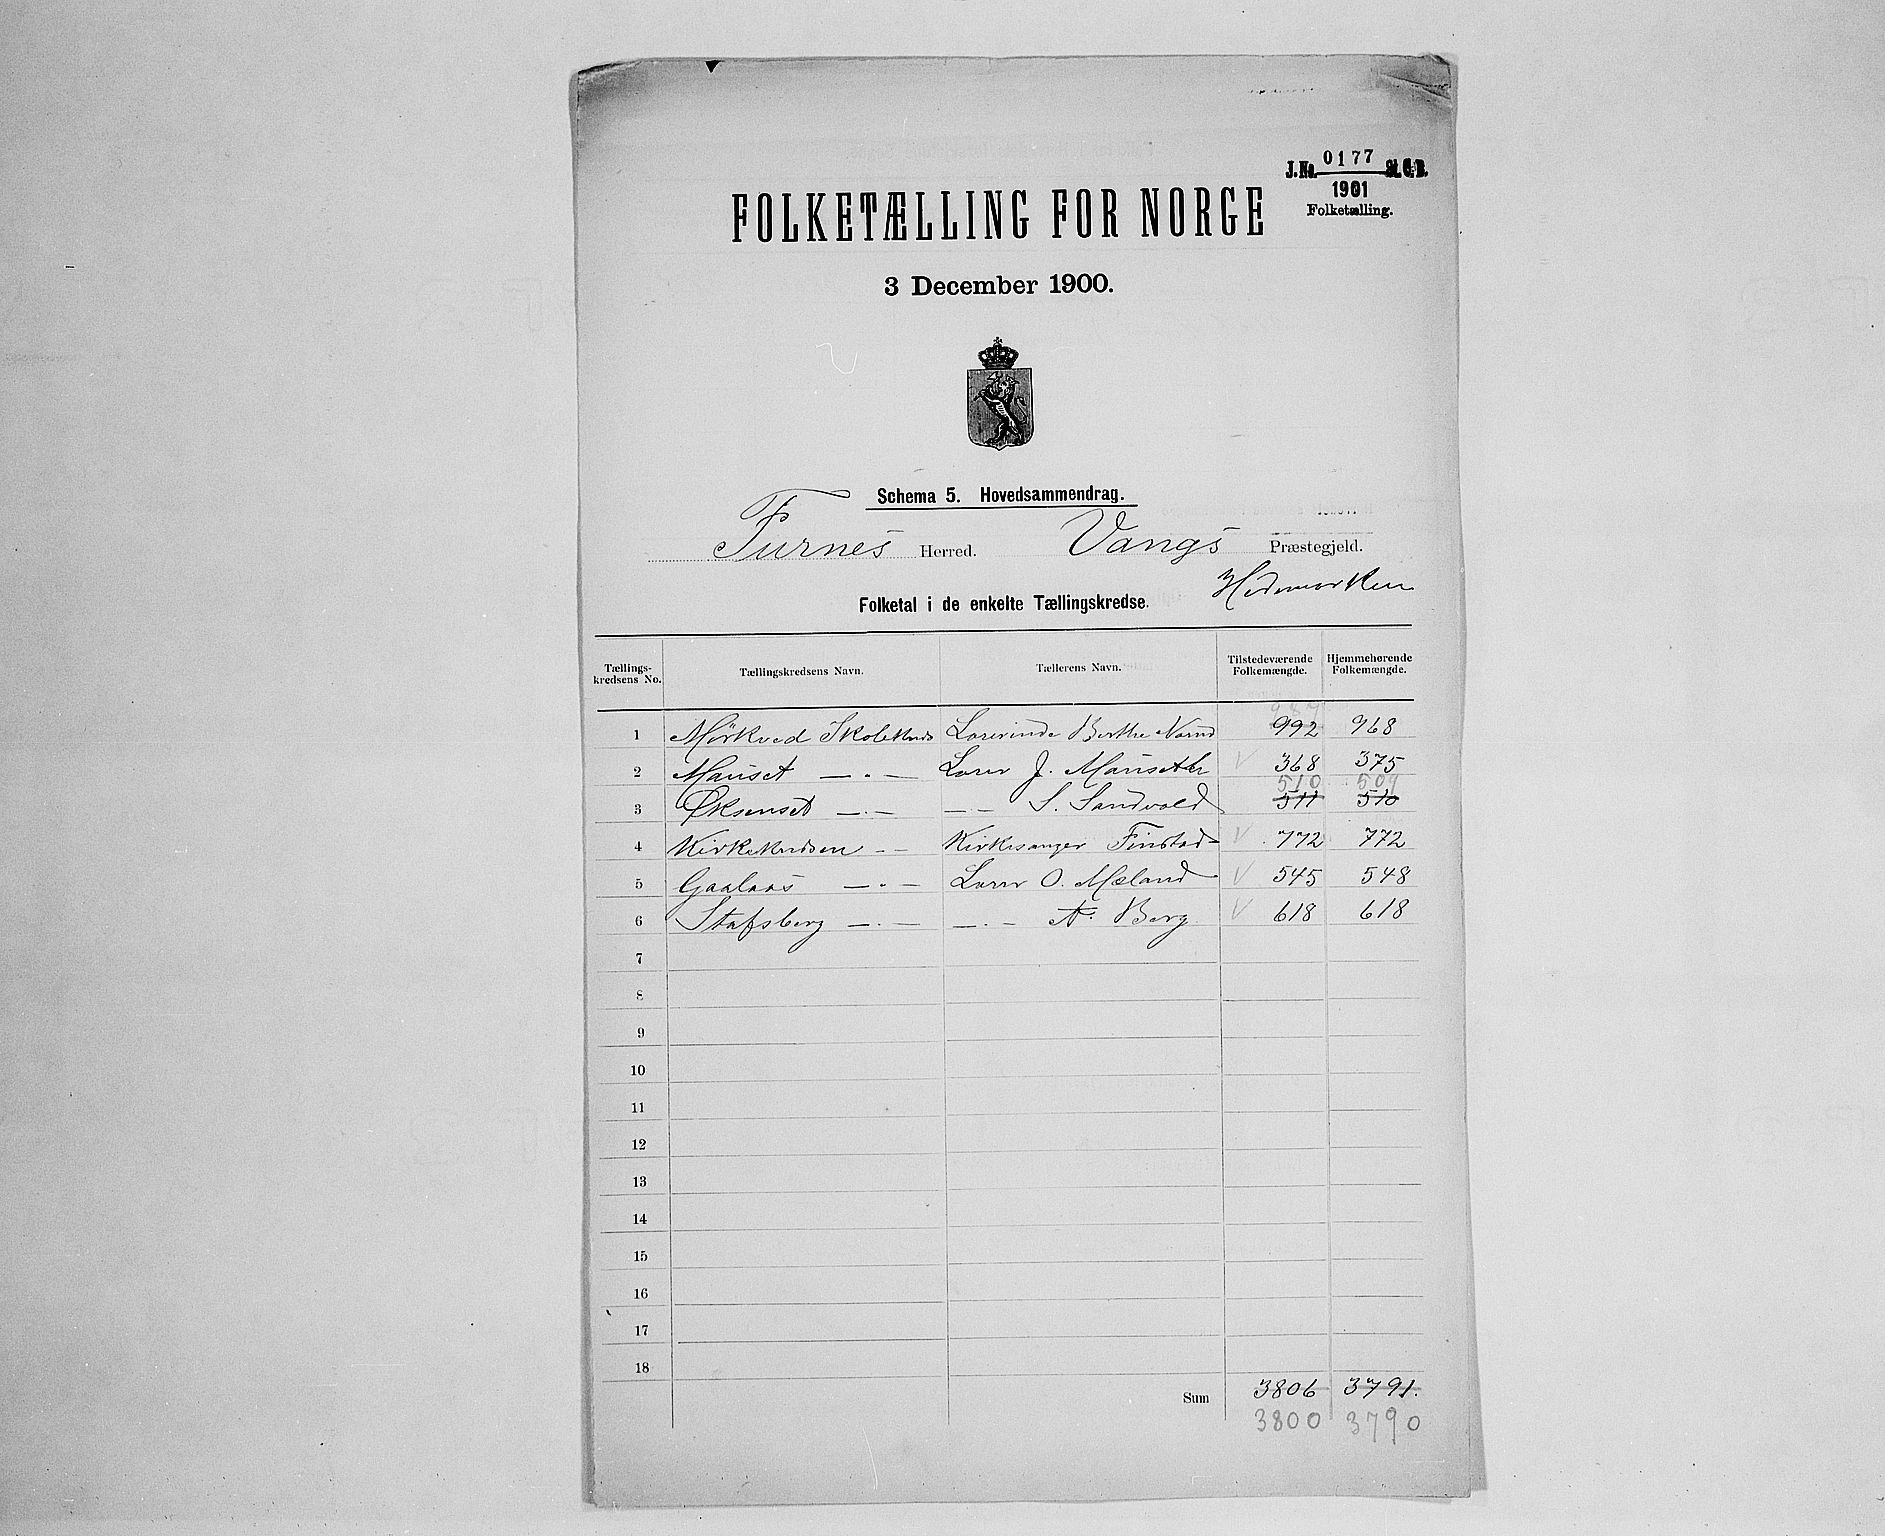 J.No. 0177 St.C.B.
1901
Folketælling.
FOLKETÆLLING FOR NORGE
3 December 1900.
Schema 5. Hovedsammendrag.
Furnes Herred. Vangs Præstegjeld.
Hedemarken
Folketal i de enkelte Tællingskredse.
Tællingskredsens No. Tællingskredsens Navn. Tællerens Navn. Tilstedeværende Folkemængde. Hjemmehørende Folkemængde.
1 Mørkved Skolekreds Lærerinde Berthe 992 968
2 Mauset — " — Lærer J. Mauseth 368 375
510 509
3 Øksenset — " — — " — S. Sandvold 511 510
4 Kirkekredsen — — Kirkesanger Finstad 772 772
5 Gaalaas — " — Lærer O. Mæland 545 548
6 Stafsberg — " — — " — A. Berg 618 618
7
8
9
10
11
12
13
14
15
16
17
18
Sum 3806 3791.
3800 3790